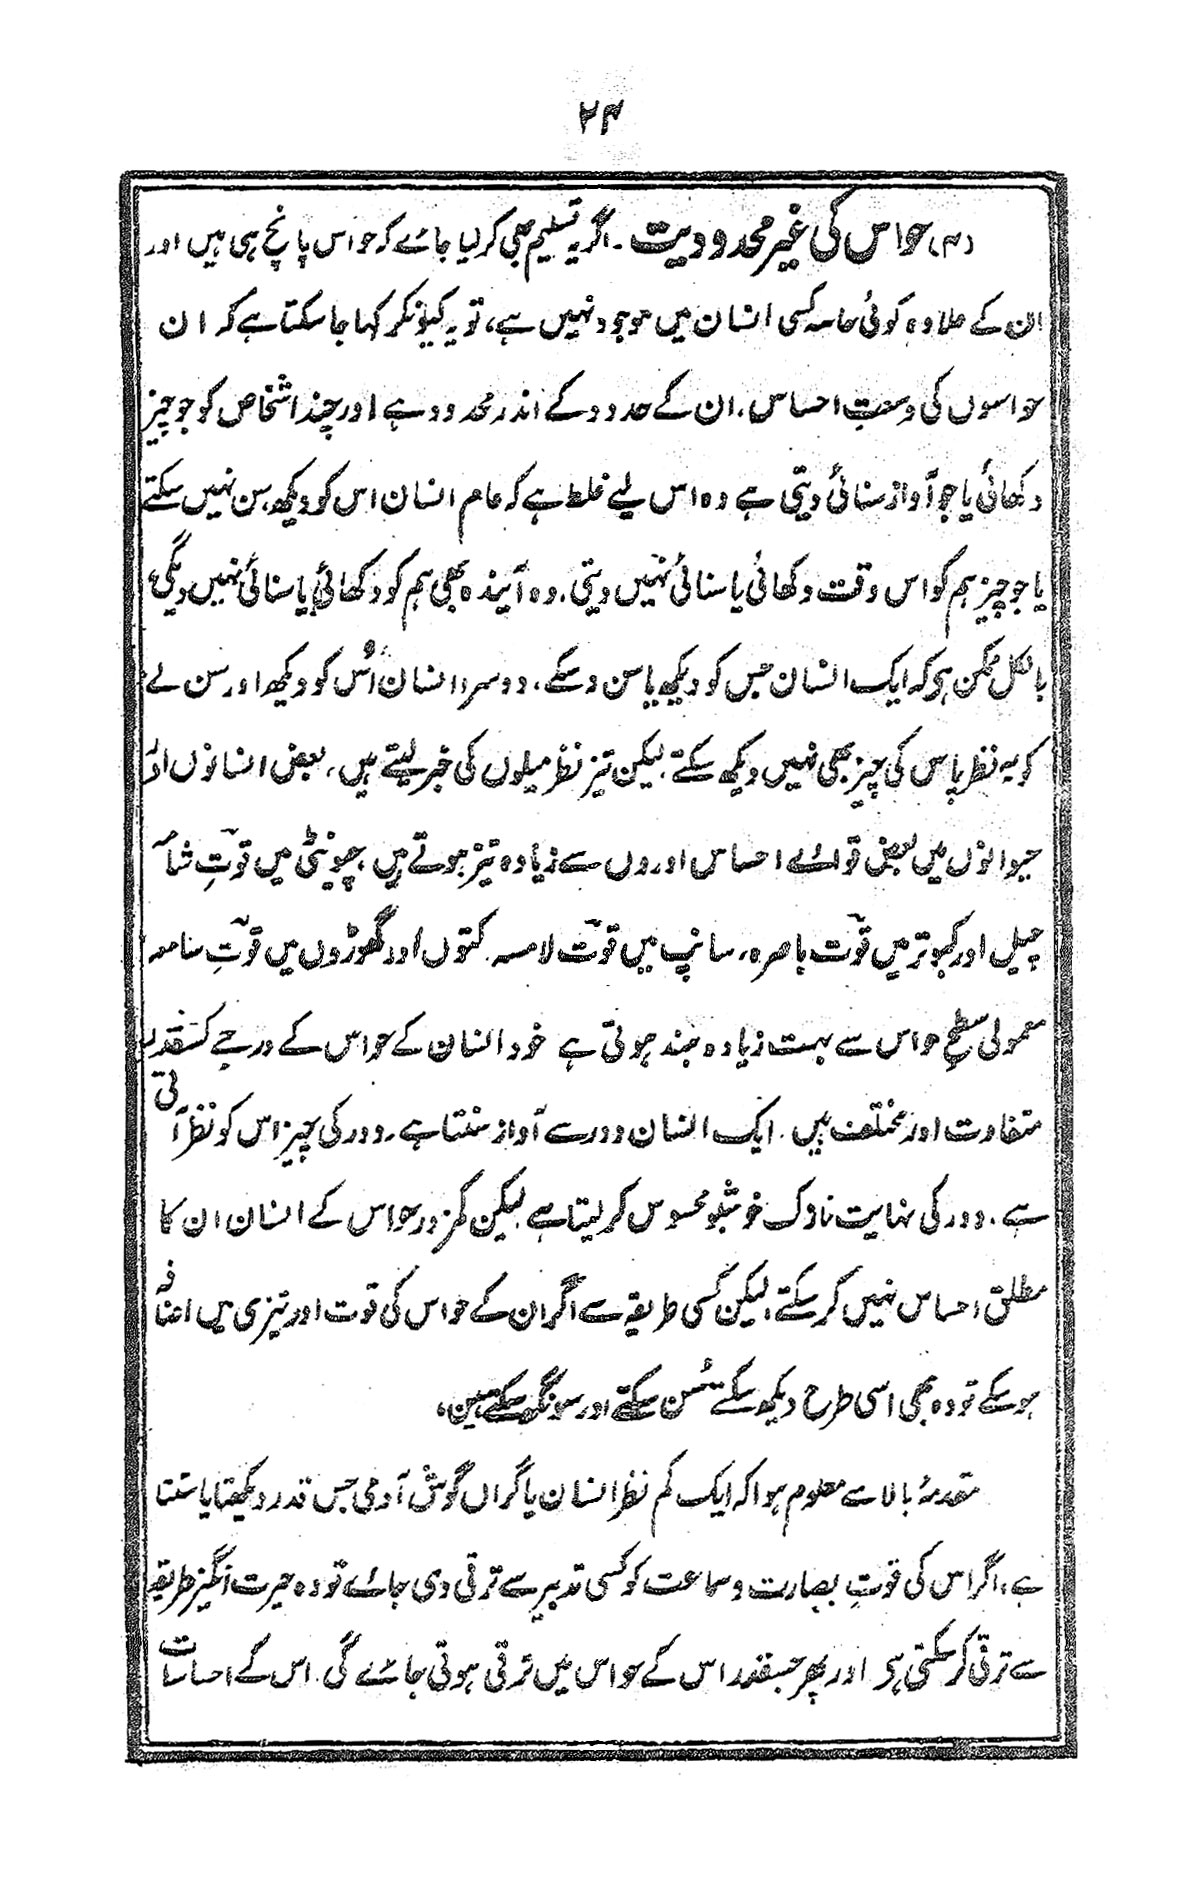 ۲۴
(۴) حواس کی غیر محدودیت ۔ اگر یہ تسلیم بھی کر لیا جائے کہ حواس پانچ ہی ہیں اور
ان کے علاوہ کوئی حاسہ کسی انسان میں موجود نہیں ہے، تو یہ کیونکر کہا جا سکتا ہے کہ ان
حواسوں کی وسعتِ احساس، ان کے حدود کے اندر محدود ہے اور چند اشخاص کو جو چیز
دکھائی یا جو آواز سنائی دیتی ہے وہ اس لیے غلط ہے کہ عام انسان اس کو دیکھ، سن نہیں سکتے
یا جو چیز ہم کو اس وقت دکھائی یا سنائی نہیں دیتی، وہ آیندہ بھی ہم کو دکھائی یا سنائی نہیں دیگی،
بالکل ممکن ہی کہ ایک انسان جس کو دیکھ یا سن نہ سکے، دوسرا انسان اُس کو دیکھ اور سن لے
کو یہ نظر پاس کی چیز بھی نہیں دیکھ سکتے، لیکن تیز نظر میلوں کی خبر لیتے ہیں، بعض انسانوں اور
حیوانوں میں بعض قوائے احساس اوروں سے زیادہ تیز ہوتے ہیں، چیونٹی میں قوتِ شامہ
چیل اور کبوتر میں قوت باصرہ، سانپ میں قوت لامسہ، کتوں اور گھوڑوں میں قوتِ سامعہ
معمولی سطحِ حواس سے بہت زیادہ بلند ہوتی ہے خود انسان کے حواس کے درجے کسقدر
متفاوت اور مختلف ہیں، ایک انسان دور سے آواز سنتا ہے، دور کی چیز اس کو نظر آتی
ہے، دور کی نہایت نازک خوشبو محسوس کر لیتا ہے لیکن کمزور حواس کے انسان ان کا
مطلق احساس نہیں کر سکتے، لیکن کسی طریقہ سے اگر ان کے حواس کی قوت اور تیزی میں اضافہ
ہو سکے تو وہ بھی اسی طرح دیکھ سکتے، سُن سکتے اور سونگھ سکتے ہین،
مقدمۂ بالا سے معلوم ہوا کہ ایک کم نظر انسان یا گراں گوش آدمی جس قدر دیکھتا یا سنتا
ہے، اگر اس کی قوتِ بصارت و سماعت کو کسی تدبیر سے ترقی دی جائے تو وہ حیرت انگیز طریقہ
سے ترقی کر سکتی ہی اور پھر جسقدر اس کے حواس میں ترقی ہوتی جائے گی اس کے احساسات